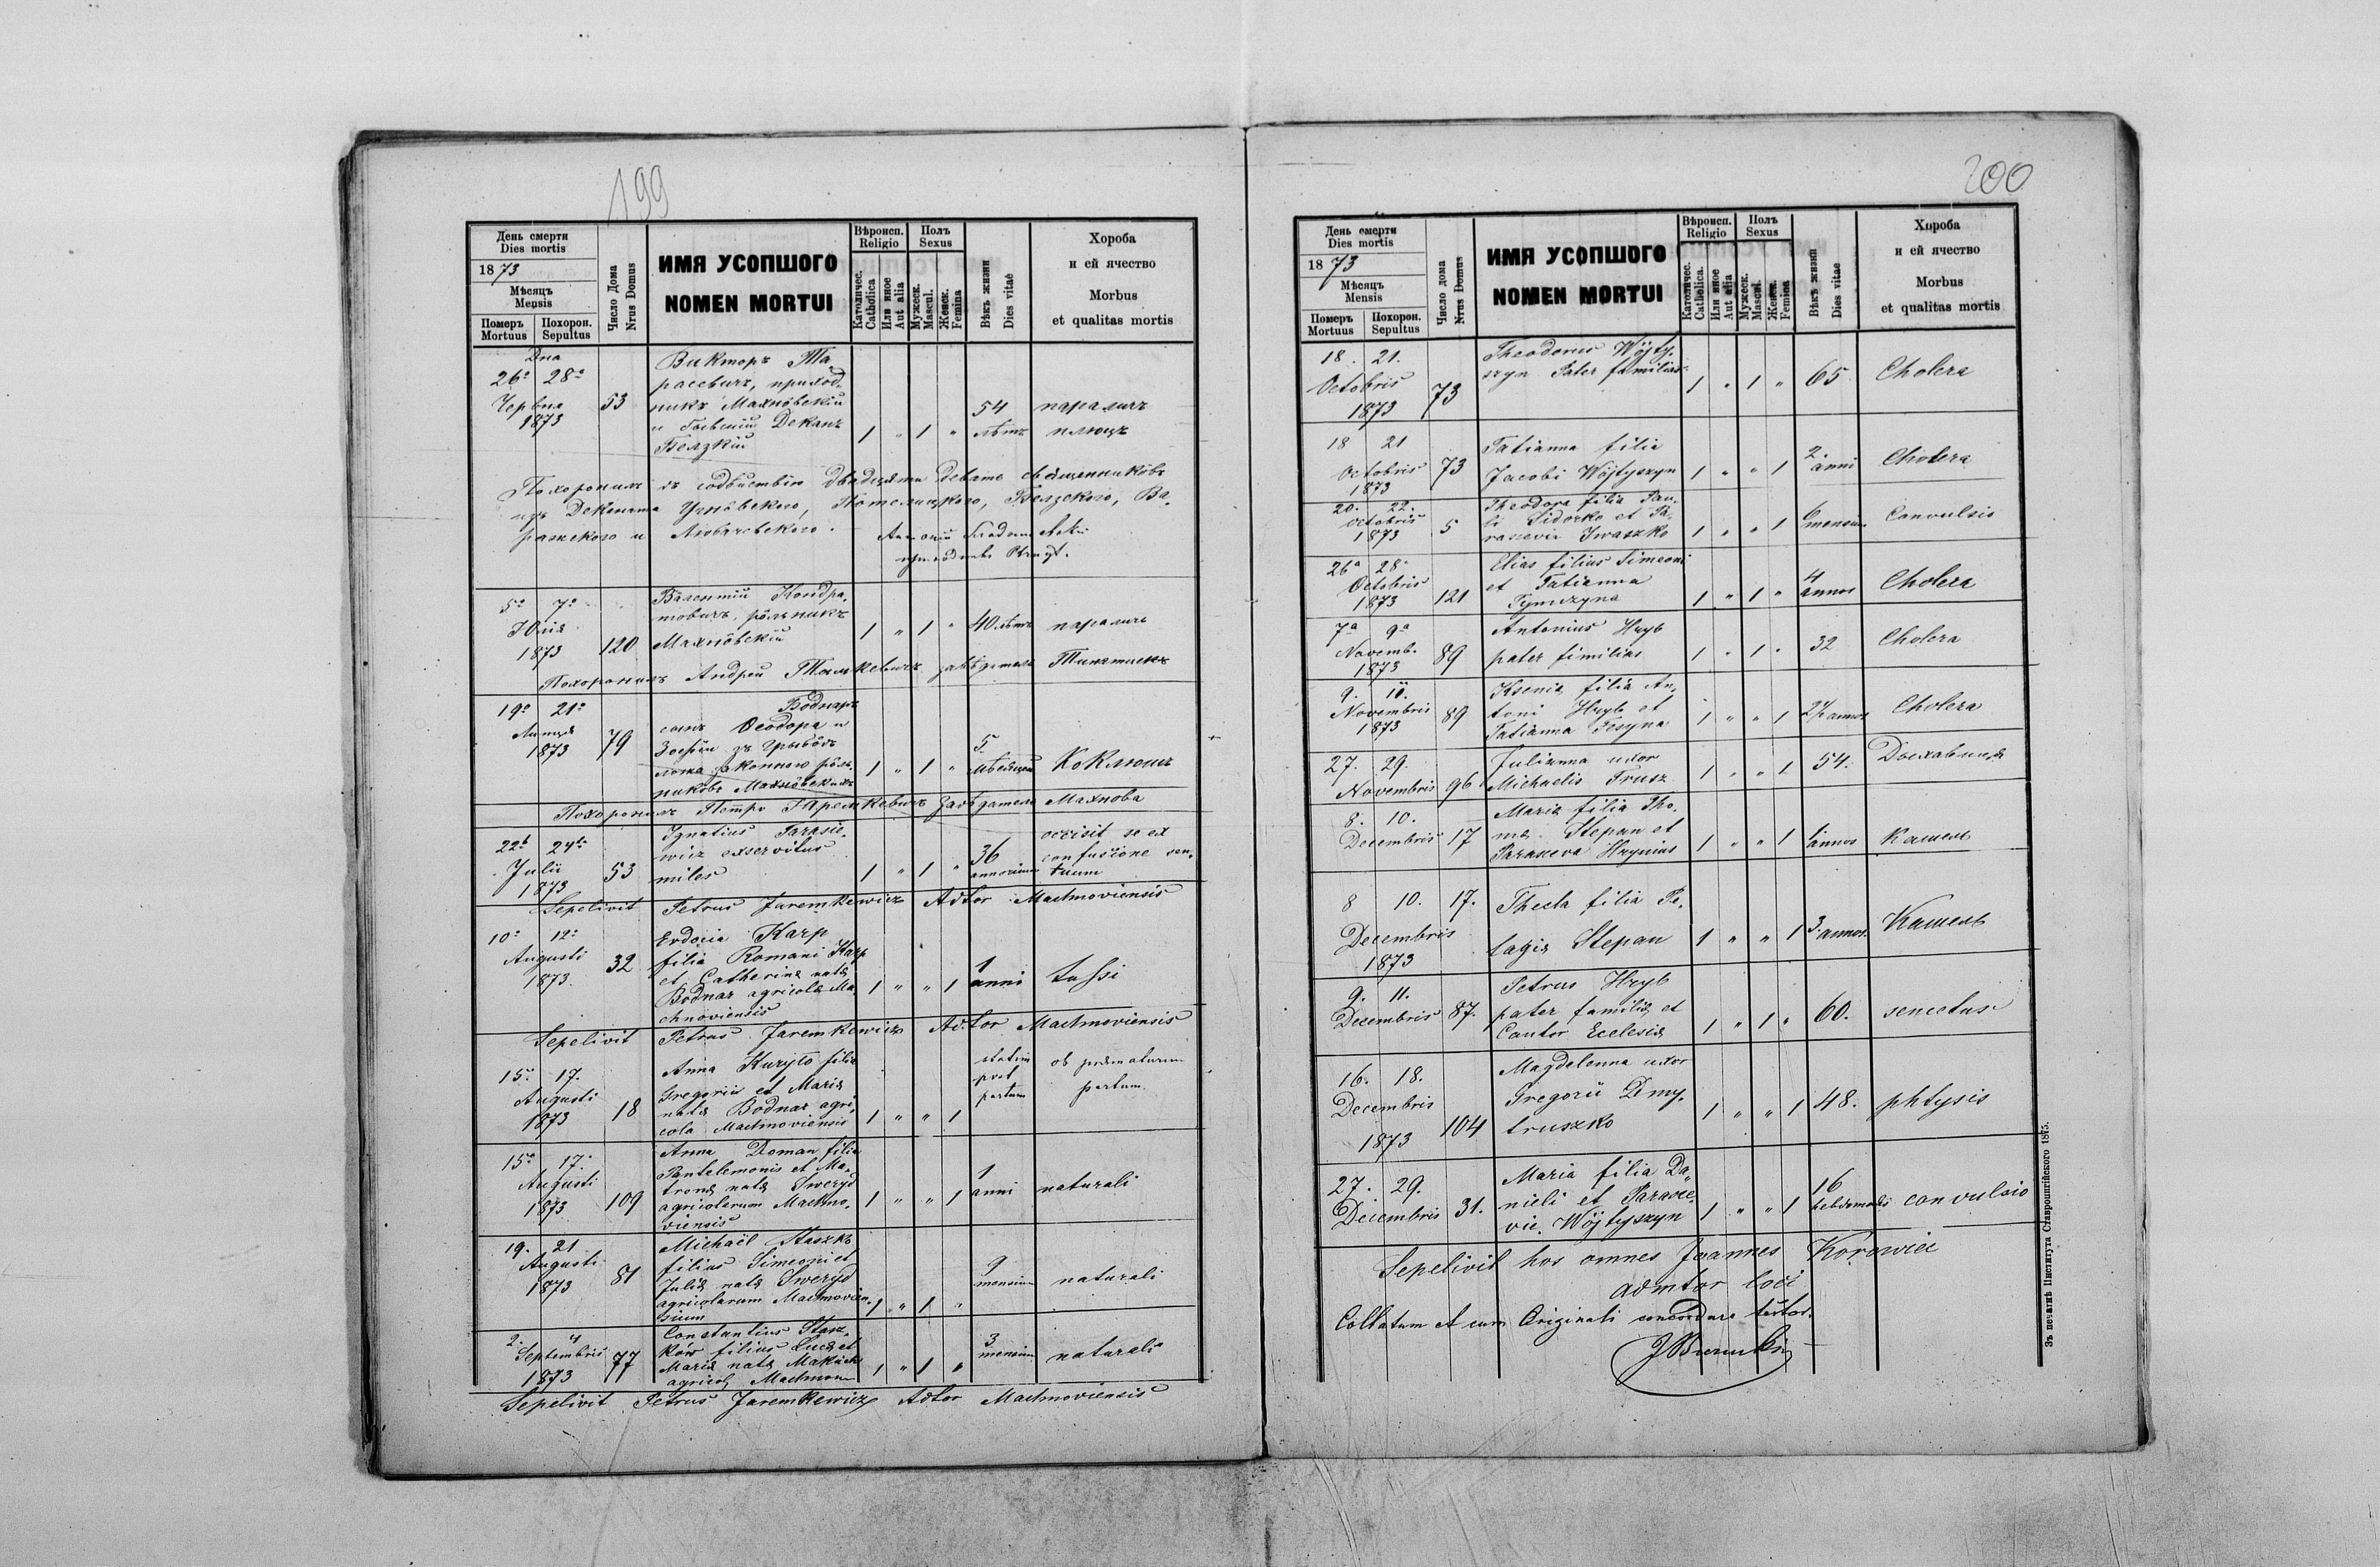 199
День смерти
Dies mortis
1873
Мѣсяцъ
Mensis
Померъ
Mortuus
Похорон.
Sepultus
Число Дома
Nrus Domus
ИМЯ УСОПШОГО
NOMEN MORTUI
Вѣроисп.
Religio
Католичес.
Catholica
Или иное
Aut alia
Полъ
Sexus
Мужеск.
Mascul.
Женск.
Femina
Вѣкъ жизни
Dies vitae
Хороба
и ей ячество
Morbus
et qualitas mortis
Дна
26° 28°
Червца
1873
53
Викторъ Та
расевичъ, приход-
никъ Махнôвскій
и бывшій Деканъ
Белзкій
1 " 1 "
54
лѣтъ
параличъ
Похоронилъ въ содѣйствію двадцяти девять священникôвъ
изъ Деканата Угнôвского, Потелицкого, Белзского, Ва-
ряжского и Любачевского.
5° 7°
Юлія
1873
120
Валентій Кондра-
товичъ, рôльникъ
Махнôвскій
1 " 1 "
40 лѣтъ
параличъ
Похоронилъ Андрей
19° 21°
Липця
1873
79
Боднаръ
сынъ Ѳеодора и
1 " 1 "
5
мѣсяцей
Коклюшъ
Похоронилъ Петро Яремкевичъ Завѣдатель Махнова
22° 24°
Julii
1873
53
Ignatius Tarasie-
wicz exservitus
miles
1 " 1 "
36
annorum
occisit se ex
confusione sen-
suum
Sepelivit Petrus Jaremkewicz Adtor Machnoviensis
10° 12°
Augusti
1873.
32
Evdocia Karp
filia Romani Karp
et Catherina nata
Bodnar agricola Ma-
chnoviensis
1 " " 1
1
anni
tussi
Sepelivit Petrus Jaremkewicz Adtor Machnoviensis
15° 17.
Augusti
1873
18
Anna Kuryło filia
Gregorii et Maria
nata Bodnar agri-
cola Machnoviensis
1 " " 1
statim
post
partum
ob praematurum
partum
15° 17.
Augusti
1873
109
Anna Doman filia
Pantelemonis et Ma-
trona nata Sweryd
agricolarum Machno-
viensis
1 " " 1
1
anni
naturali
19. 21
Augusti
1873
81
Michaël Staszko
filius Simeoni et
Julia nata Sweryd
agricolarum Machnovien-
sium
1 " 1 "
9
mensium
naturali
2. 4
Septembris
1873
77
Constantius Stasz-
ków filius Luca et
Maria nata
agricol
1 " 1 "
3
mensium
naturali
Sepelivit Petrus Jaremkewicz Adtor Machnoviensis
200
День смерти
Dies mortis
1873
Мѣсяцъ
Mensis
Померъ
Mortuus
Похорон.
Sepultus
Число дома
Nrus Domus
ИМЯ УСОПШОГО
NOMEN MORTUI
Вѣроисп.
Religio
Католичес.
Catholica.
Или иное
Aut alia
Полъ
Sexus
Мужеск.
Mascul.
Женск.
Femina
Вѣкъ жизни
Dies vitae
Хороба
и ей ячество
Morbus
et qualitas mortis
18. 21.
Octobris
1873
73
Theodorus Wójty-
szyn Pater familias
1 " 1 "
65
Cholera
18 21
Octobris
1873
73
Tatianna filia
Jacobi Wójtyszyn
1 " " 1
2
anni
Cholera
20. 22.
octobris
1873
5
Theodora filia Pau-
li Sidorko et Pa-
rascevia Iwaszko
1 " " 1
6
mensium
Convulsio
26ª 28ª
Octobris
1873
121
Elias filius Simeoni
et Tatianna
1 " 1 "
4
annos
Cholera
7ª 9ª
Novemb.
1873
89
Antonius Hryb
pater familias
1 " 1 "
32
Cholera
9. 11.
Novembris
1873
89
Ksenia filia An-
toni Hryb et
Tatianna
1 " " 1
2½ annos
Cholera
27. 29.
Novembris
96
Julianna uxor
Michaelis Trusz
1 " " 1
54.
Дыхавиця
8. 10.
Decembris
17
Maria filia Tho-
ma Stepan et
Parasceva Hrynius
1 " " 1
annos
Кашель
8 10.
Decembris
1873
17.
Thecla filia Pe-
lagia Stepan
1 " " 1
3 annos.
Кашель
9. 11.
Decembris
87.
Petrus Hryb
pater familia et
Cantor Ecclesia
1 " 1 "
60.
senectus
16. 18.
Decembris
1873
104
Magdelenna uxor
Gregorii Dmy-
truszko
1 " " 1
48.
phtysis
27. 29.
Decembris
31.
Maria filia Da-
nieli et Parasce-
via Wójtyszyn
1 " " 1
16
hebdomadis
convulsio
Sepelivit hos omnes Joannes Korowiec
admtor loci
Collatum et cum Originali concordare testor.
Зъ печатнѣ Института Ставропигійского 1875.